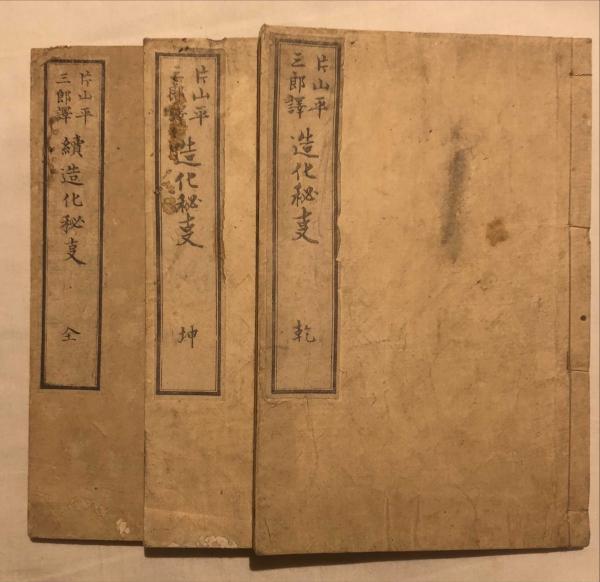 片山平
三郎譯
造化秘叓
乾
片山平
三郎譯
造化秘叓
坤
片山平
三郎譯
續造化秘叓
全